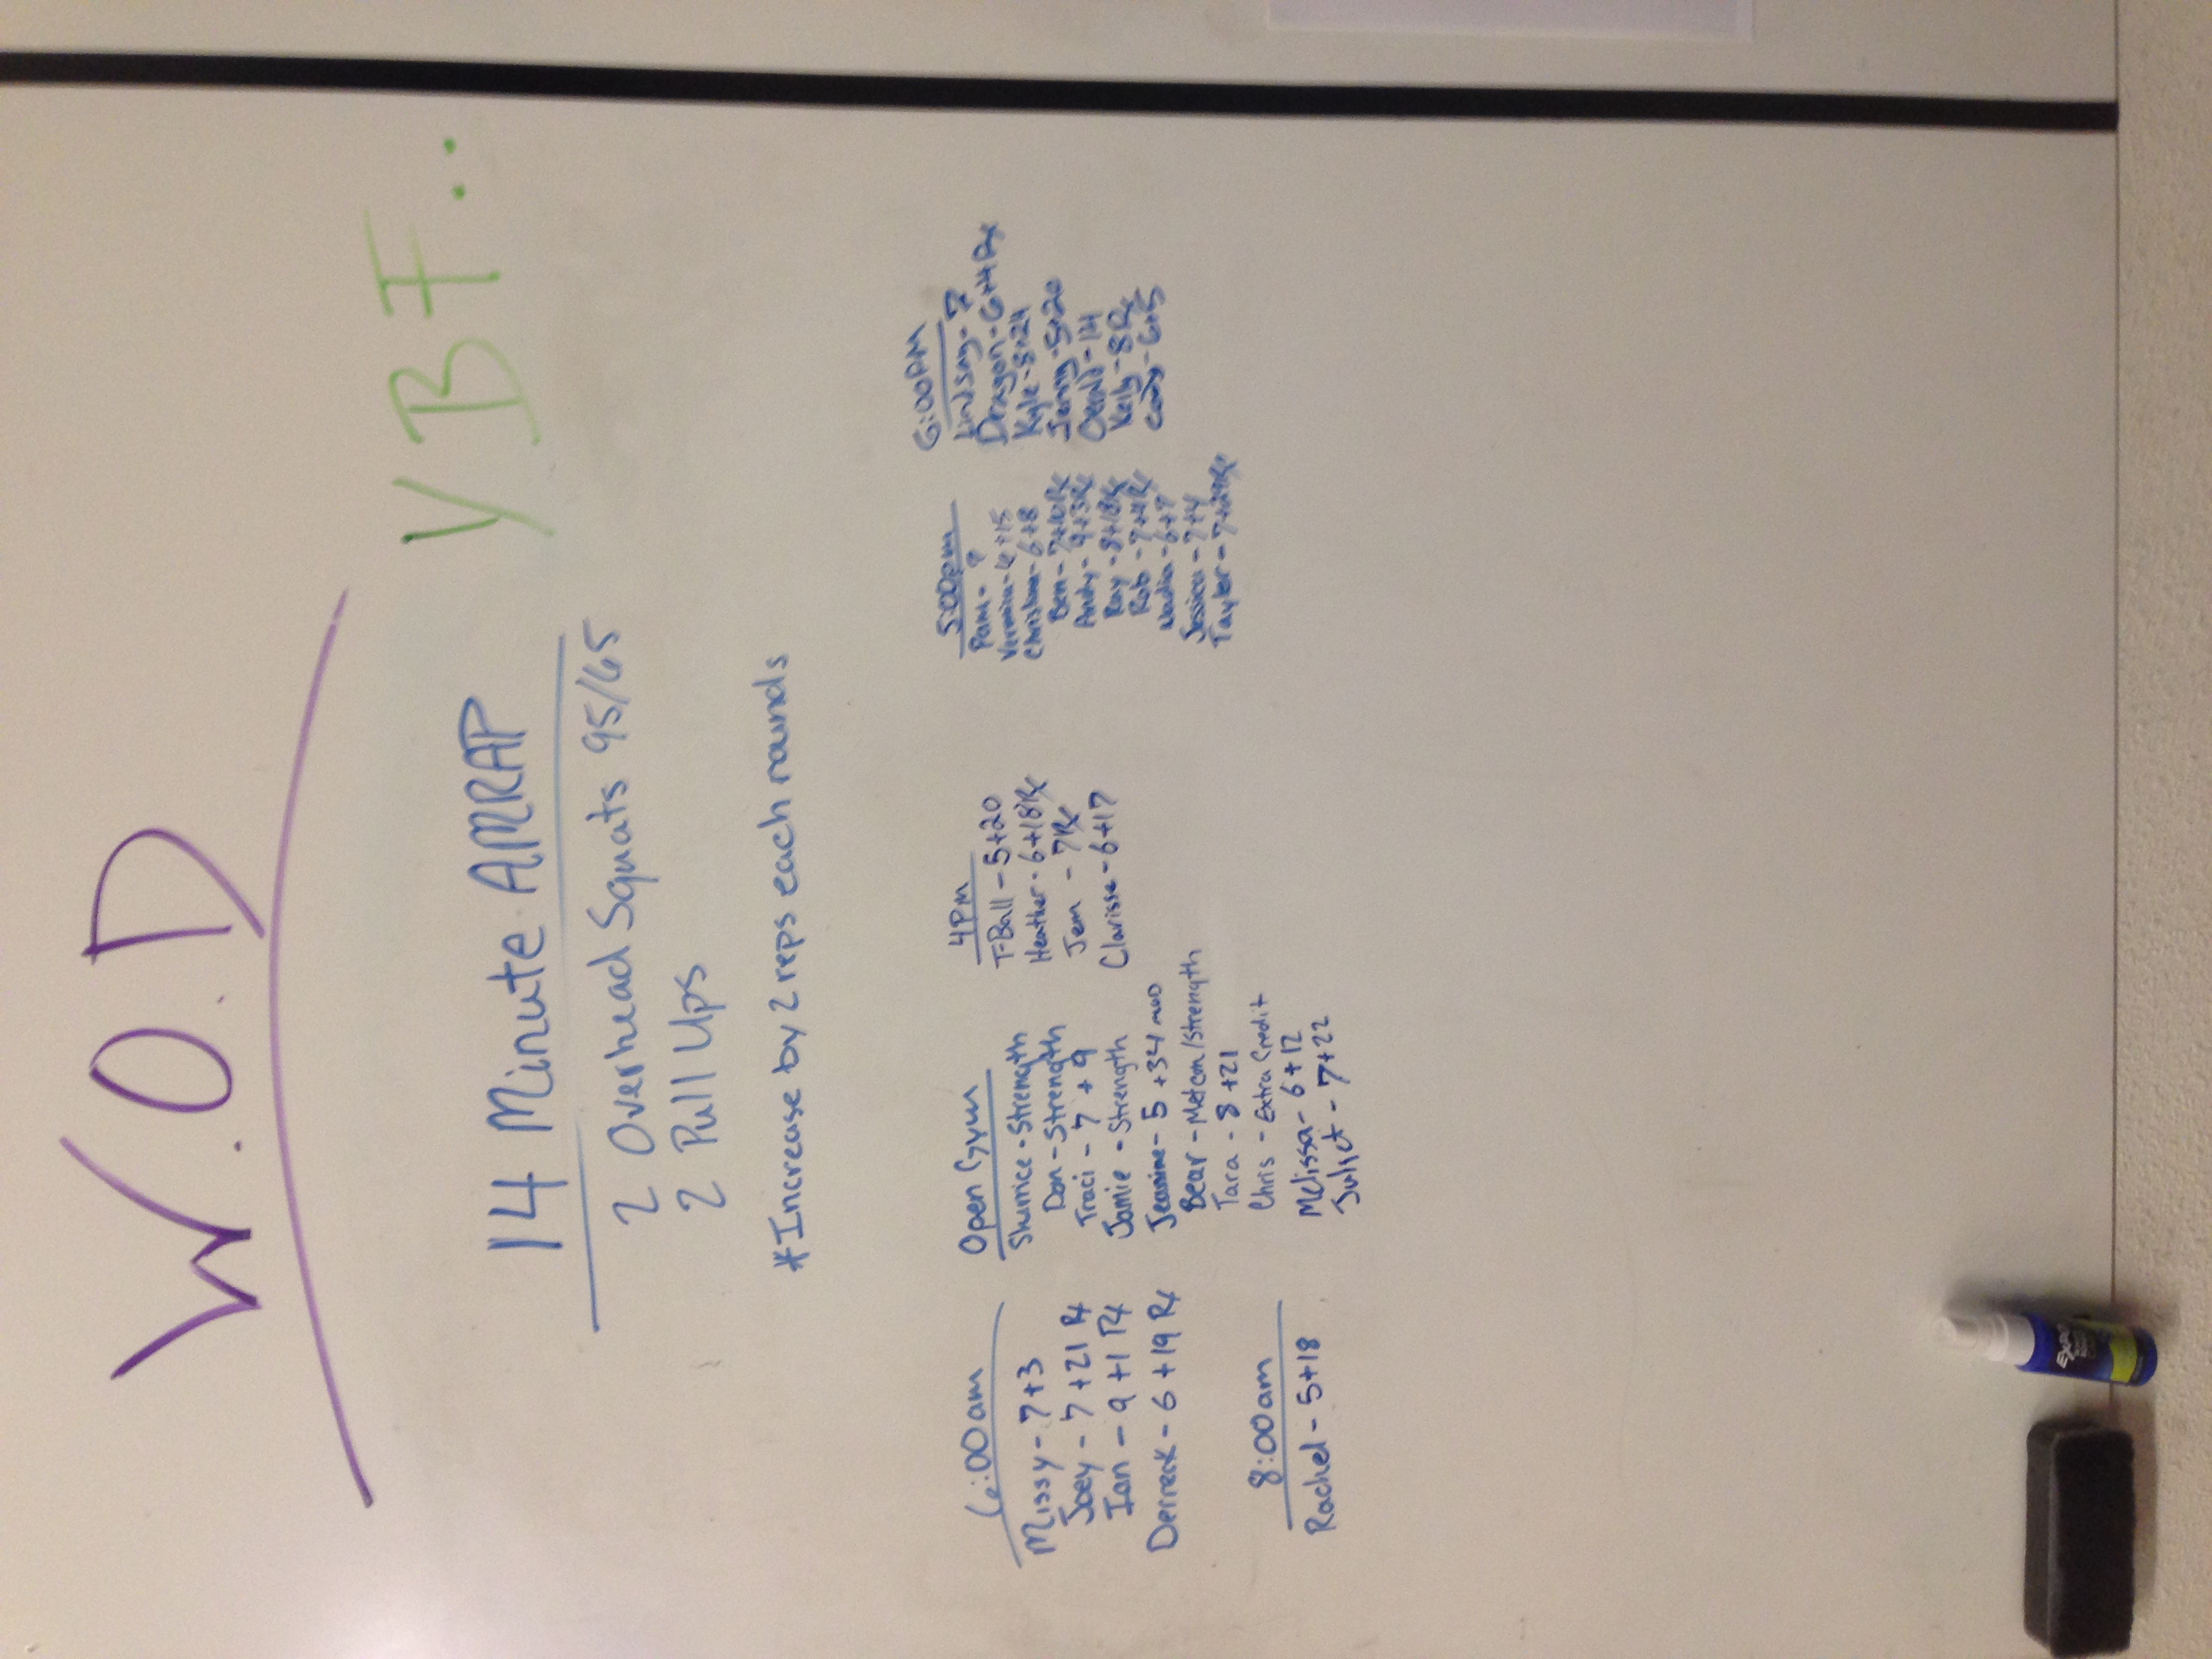 W.O.D
VBF..
14 Minute AMRAP
2 Overhead Squats 95/65
2 Pull Ups
*Increase by 2 reps each rounds
6:00am
Missy - 7+3
Joey - 7+21 Rx
Ian - 9+1 Rx
Derreck - 6+19 Rx
8:00am
Rachel - 5+18
Open Gym
Shurrice - Strength
Dan - Strength
Traci - 7+9
Jamie - Strength
Jeanine - 5+34 mod
Bear - Metcon/Strength
Tara - 8+21
Chris - Extra Credit
Melissa - 6+12
Juliet - 7+22
4PM
T-Ball - 5+20
Heather - 6+18Rx
Jen - 7Rx
Clarisse - 6+17
5:00pm
Pam - ?
6+15
Christine - 6+8
Ben - 7+10Rx
Andy - 9+3Rx
Ray - 8+18Rx
Rob - 7+4Rx
Nadia - 6+7
Jessica - 7+4
Taylor - 7+24Rx
6:00PM
Lindsay - ?
Dragon - 6+4Rx
Kyle - 8+24
Jenny - 5+20
- 14
Kelly - 8Rx
- 6+5
EXPO